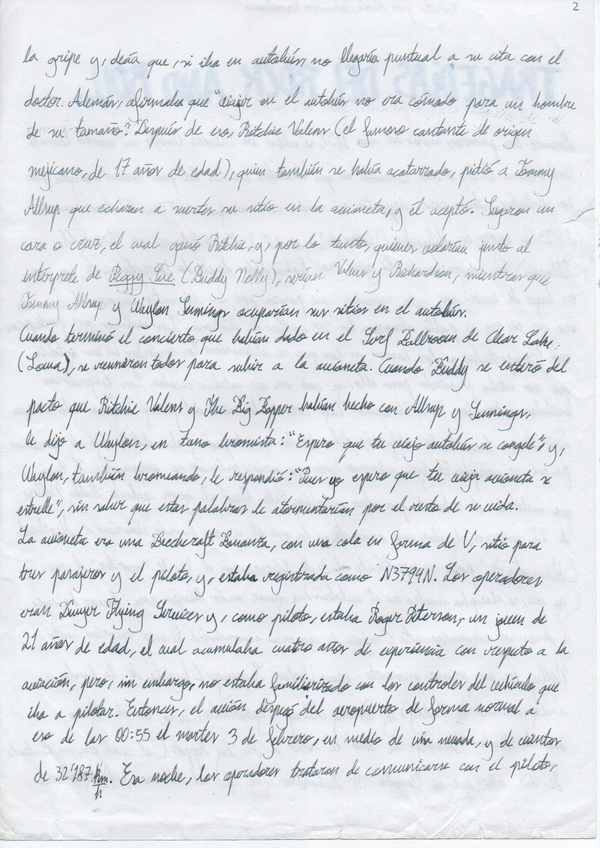 2
la gripe y, decía que, si iba en autobús, no llegaría puntual a su cita con el
doctor. Además, afirmaba que "viajar en el autobús no era cómodo para un hombre
de su tamaño". Después de eso, Ritchie Valens (el famoso cantante de origen
mejicano, de 17 años de edad), quien también se había acatarrado, pidió a Tommy
Allsup que echaran a suertes su sitio en la avioneta, y él aceptó. Jugaron un
cara o cruz, el cual ganó Ritchie, y, por lo tanto, quienes volarían junto al
intérprete de Peggy Sue (Buddy Holly), serían Valens y Richardson, mientras que
Tommy Allsup y Waylon Jennings ocuparían sus sitios en el autobús.
Cuando terminó el concierto que habían dado en el Surf Ballroom de Clear Lake,
(Iowa), se reunieron todos para subir a la avioneta. Cuando Buddy se enteró del
pacto que Ritchie Valens y The Big Bopper habían hecho con Allsup y Jennings,
le dijo a Waylon, en tono bromista: "Espero que tu viejo autobús se congele", y,
Waylon, también bromeando, le respondió: "Pues yo espero que tu vieja avioneta se
estrelle", sin saber que estas palabras le atormentarían por el resto de su vida.
La avioneta era una Beechcraft Bonanza, con una cola en forma de V, sitio para
tres pasajeros y el piloto, y, estaba registrada como N3794N. Los operadores
eran Dwyer Flying Services y, como piloto, estaba Roger Peterson, un joven de
21 años de edad, el cual acumulaba cuatro años de experiencia con respecto a la
aviación, pero, sin embargo, no estaba familiarizado con los controles del vehículo que
iba a pilotar. Entonces, el avión despegó del aeropuerto de forma normal a
eso de las 00:55 el martes 3 de febrero, en medio de una nevada, y de vientos
de 32'187 km/h. Esa noche, los operadores trataron de comunicarse con el piloto,